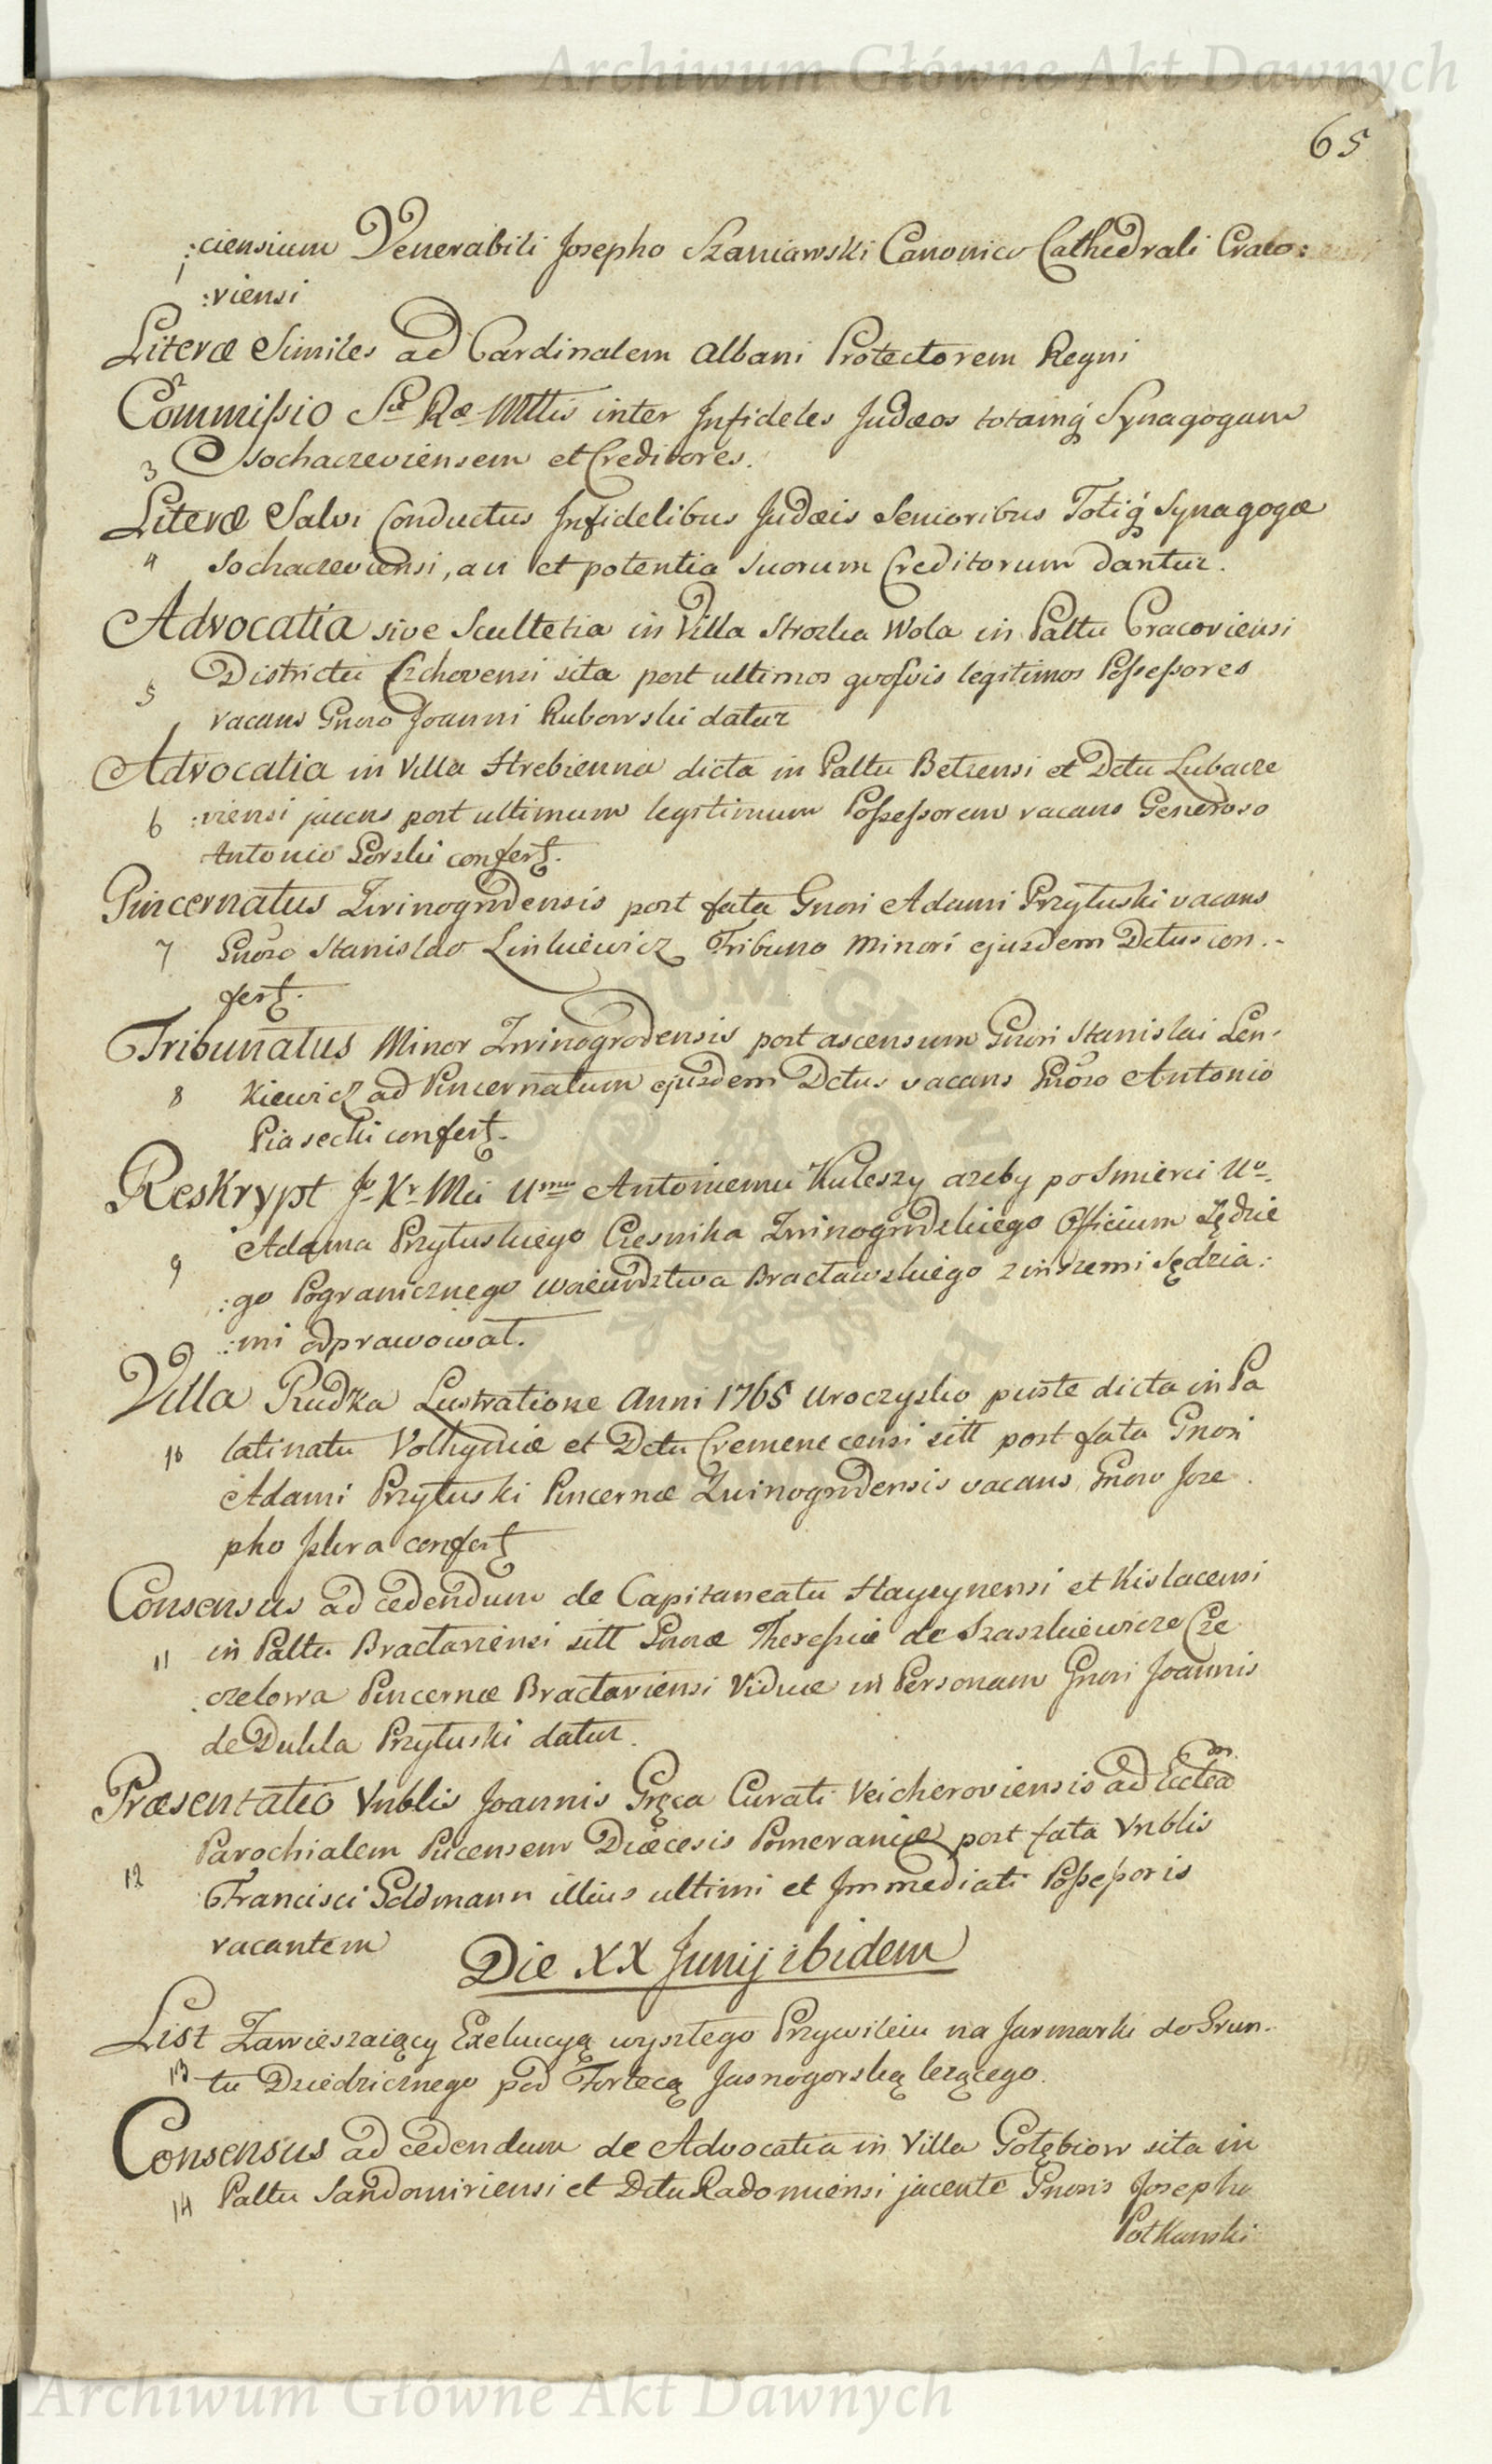 Archiwum Główne Akt Dawnych
65
:ciensium Venerabili Josepho Szaniawski Canonico Cathedrali Craco:
1 :viensi
Literæ Similes ad Cardinalem Albani Protectorem Regni
2
Commißio Sæ Ræ Mttis inter Infideles Judæos totamq́ Synagogam
3 Sochaczeviensem et Creditores.
Literæ Salvi Conductus Infidelibus Judæis Senioribus Totiq́ Synagogæ
4 Sochaczeviensi, a vi et potentia suorum Creditorum dantur.
Advocatia sive Scultetia in Villa Strozka Wola in Paltu Cracoviensi
Districtu Czchovensi sita post ultimos quosvis legitimos Poßeßores
5 vacans Gnoso Joanni Rubowski datur
Advocatia in Villa Strebienna dicta in Paltu Belzensi et Dctu Lubacze
6 :viensi jacens post ultimum legitimum Poßeßorem vacans Generoso
Antonio Gorski confert.
Pincernatus Zwinogrodensis post fata Gnosi Adami Przyłuski vacans
7 Gnoso Stanislao Linkiewicz Tribuno Minori ejusdem Dctus con.-
fert.
Tribunatus Minor Zwinogrodensis post ascensum Gnosi Stanislai Len-
8 kiewicz ad Pincernatum ejusdem Dctus vacans Gnoso Antonio
Piasecki confert.
Reskrypt Jo Kr Mci Umu Antoniemu Kuleszy azeby po Smierci Uo
Adama Przyłuskiego Czesnika Zwinogrodzkiego Officium Sędzie
9 :go Pogranicznego Woiewodztwa Bracławskiego z inszemi Sędzia:
:mi odprawował.
Villa Rudka Lustratione Anni 1765 Uroczysko puste dicta in Pa
10 latinatu Volhyniæ et Dctu Cremenecensi sitt post fata Gnosi
Adami Przyłuski Pincernæ Zwinogrodensis vacans Gnoso Joze
pho Iskra confert
Consensus ad cedendum de Capitaneatu Hayeynensi et Kislacensi
11 in Paltu Bractaviensi sitt Gnosæ Thereßiæ de Szaszkiewicze Cze
:czelowa Pincernæ Bractaviensi Viduæ in Personam Gnosi Joannis
de Dukla Przyłuski datur.
Præsentatio Vnblis Joannis Gręca Curati Veicheroviensis ad Ecclea͠m
Parochialem Pucensem Diæcesis Pomeraniæ post fata Vnblis
12 Francisci Goldmann illius ultimi et Immediati Poßeßoris
vacantem
Die XX Junij ibidem
List Zawieszaiący Exekucyą wyszłego Przywileiu na Jarmarki do Grun-
13 tu Dziedzicznego pod Fortecą Jasnogorską lezącego.
Consensus ad cedendum de Advocatia in Villa Gołębiow sita in
14 Paltu Sandomiriensi et Dctu Radomiensi jacente Gnosis Josepho
Potkanski
Archiwum Główne Akt Dawnych